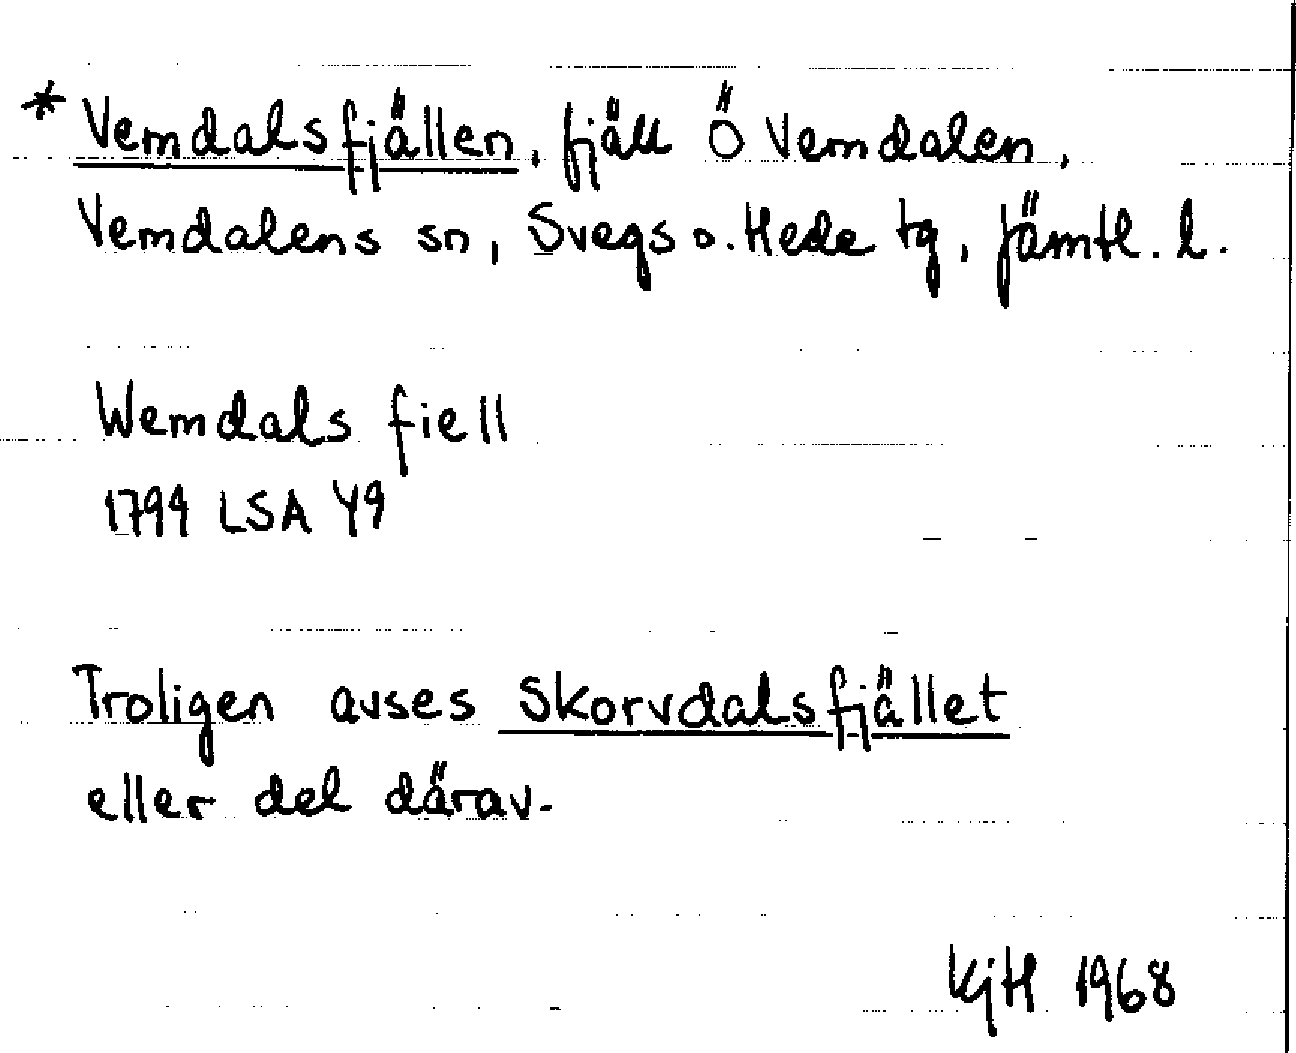 * Vemdalsfjällen, fjäll Ö Vemdalen,
Vemdalens sn, Svegs o. Hede tg, Jämtl. l.
Wemdals fiell
1799 LSA Y9
Troligen avses Skorvdalsfjället
eller del därav.
KjH 1968